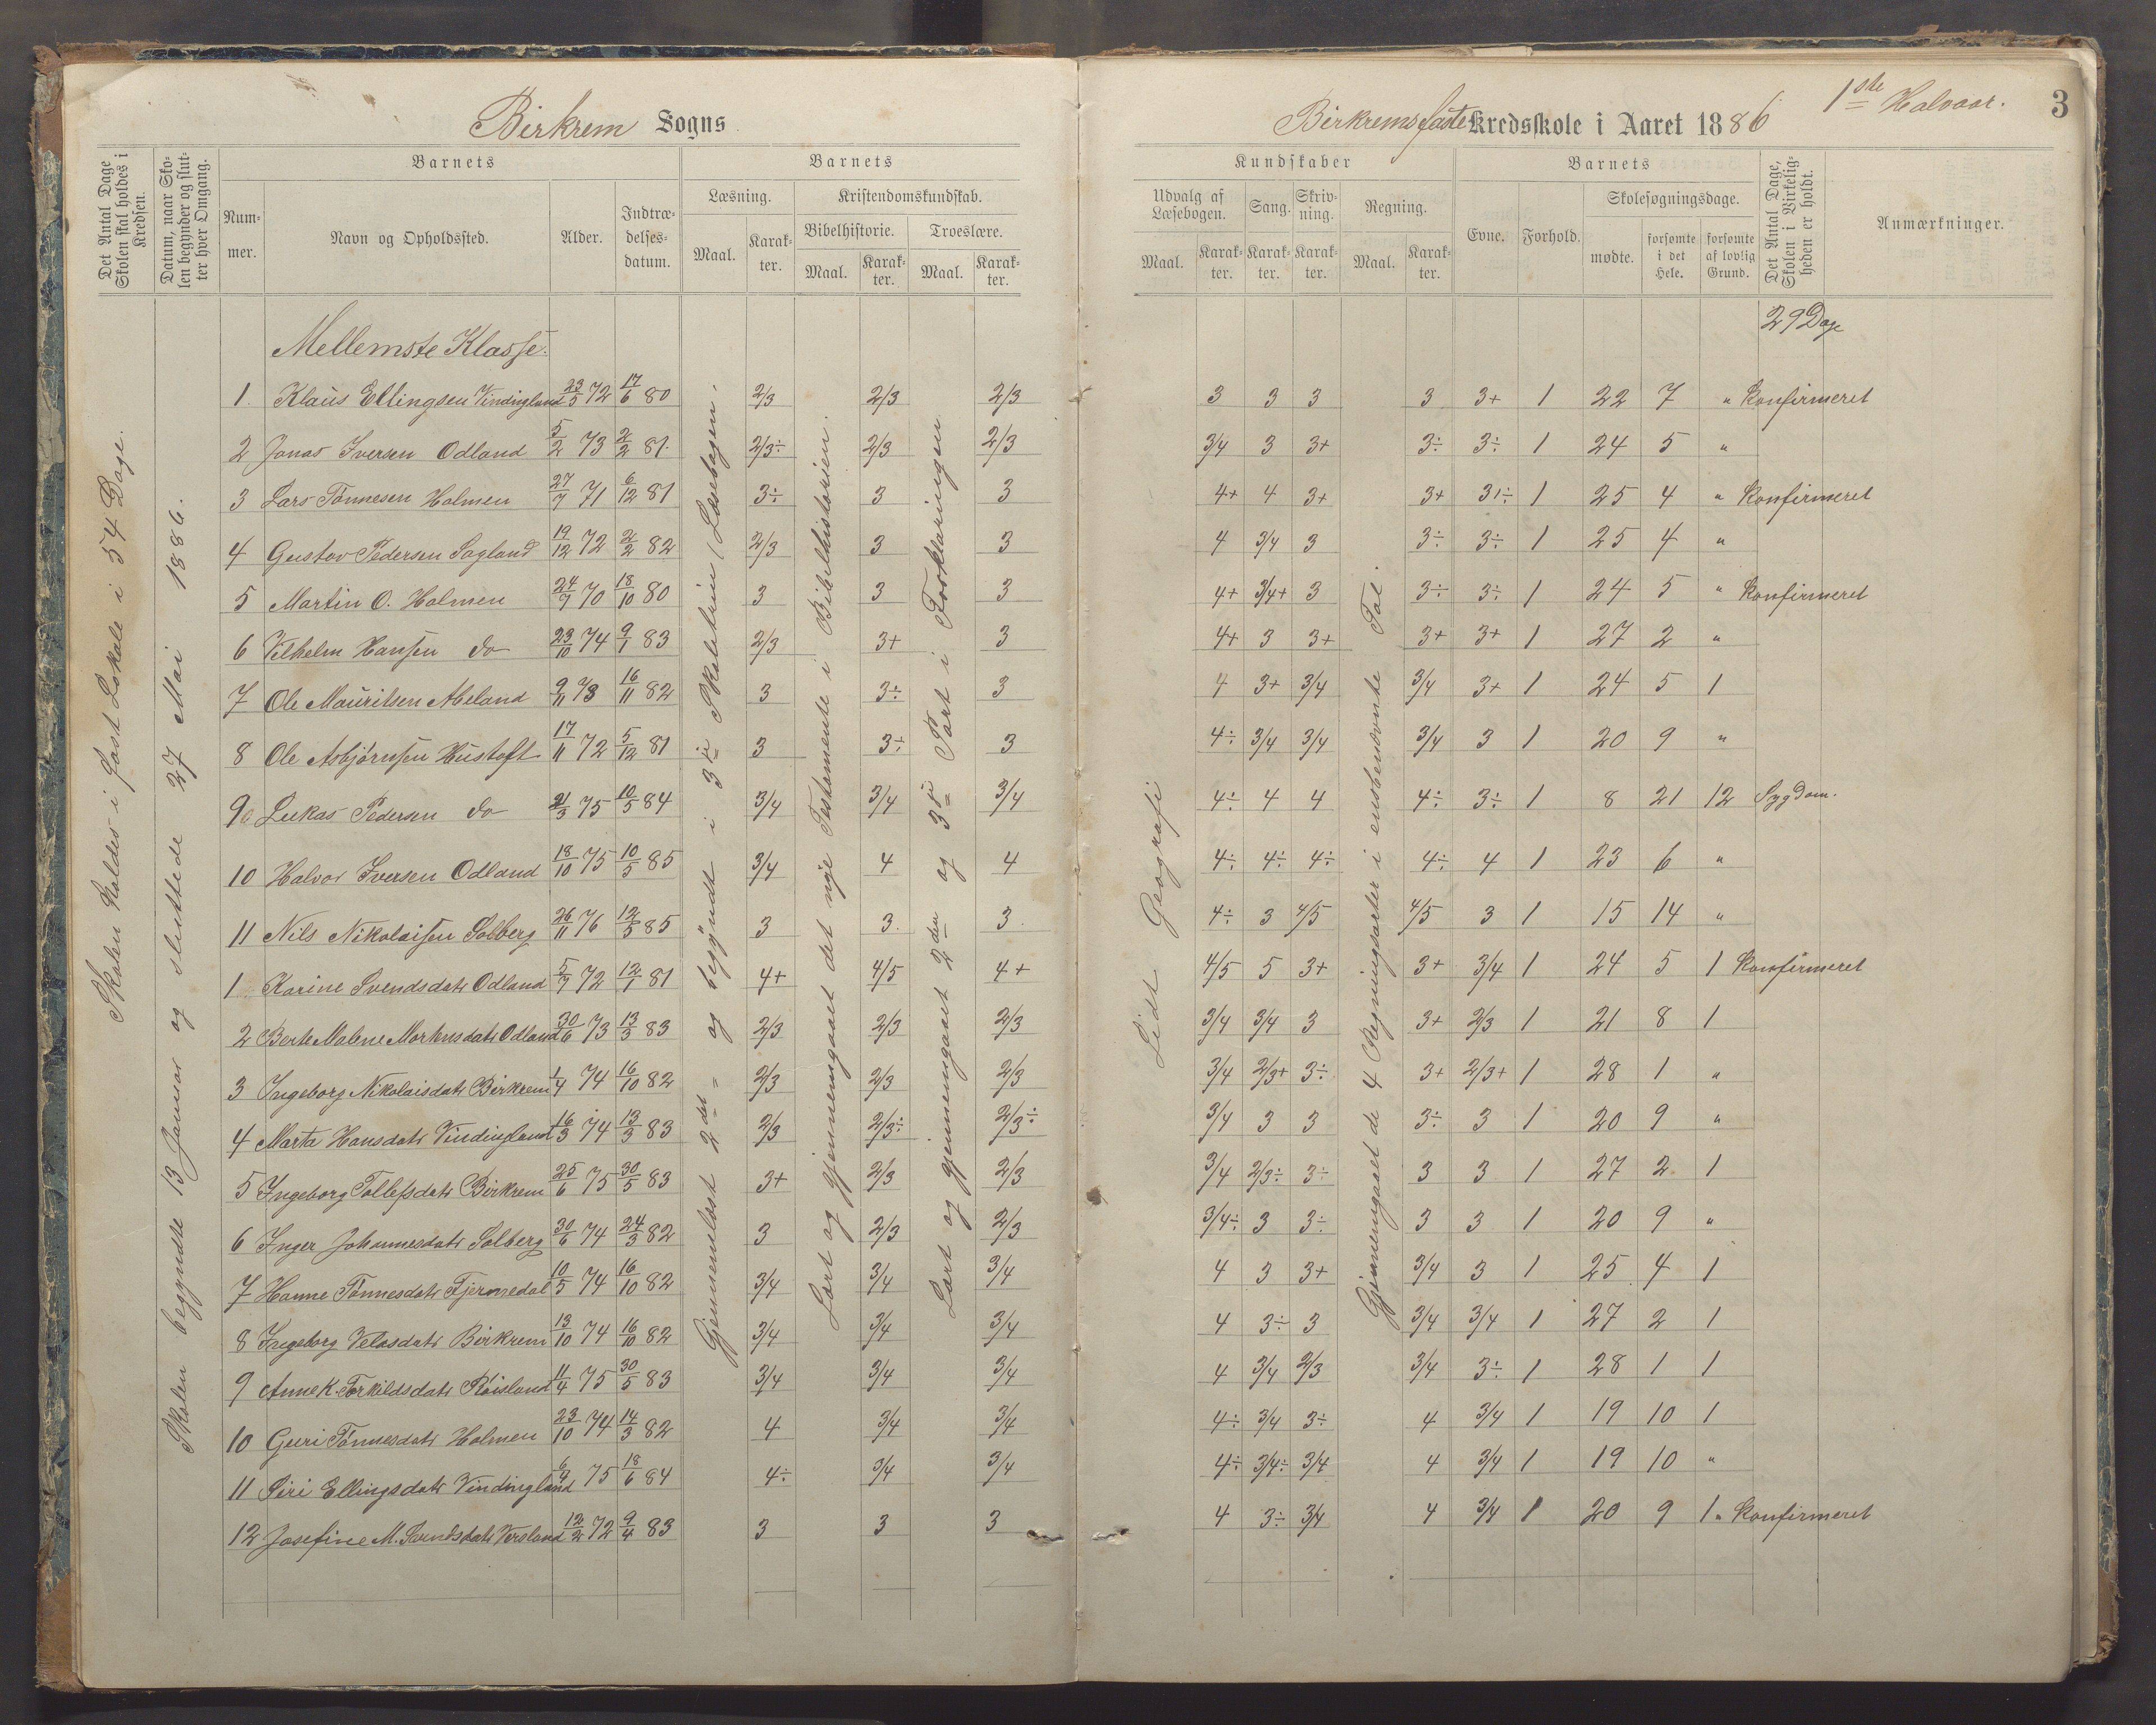 Birkrem Sogns
Birkrems faste Kredsskole i Aaret 1886 1ste Halvaar. 3
Det Antal Dage Skolen skal holdes i Kredsen.
Datum, naar Skolen begynder og slutter hver Omgang.
Barnets
Nummer.
Navn og Opholdssted.
Alder.
Indtrædelsesdatum.
Barnets
Læsning.
Maal.
Karakter.
Kristendomskundskab.
Bibelhistorie.
Maal.
Karakter.
Troeslære.
Maal.
Karakter.
Kundskaber
Udvalg af Læsebogen.
Maal.
Karakter.
Sang.
Karakter.
Skrivning.
Karakter.
Regning.
Maal.
Karakter.
Barnets
Evne.
Forhold.
Skolesøgningsdage.
mødte.
forsømte i det Hele.
forsømte af lovlig Grund.
Det Antal Dage, Skolen i Virkeligheden er holdt.
Anmærkninger.
Skolen holdes i fast Lokale i 54 Dage.
Skolen begyndte 13 Januar og sluttede 27 Mai 1886.
Gjennemlæst 2det og begyndt i 3die Skoletrin (Læsebogen.
Lært og gjennemgaaet det nye Testamente i Bibelhistorien.
Lært og gjennemgaaet 2den og 3die Part i Forklaringen
Lidt Geografi
Gjennemgaaet de 4 Regningsarter i ensbenævnte Tal.
29 Dage
Mellemste Klasse.
1. Klaus Ellingsen Vindingland 23/5 72 17/6 80 2/3 2/3 2/3 3 3 3 3 3+ 1 22 7 " Konfirmeret
2 Jonas Iversen Odland 5/2 73 2/2 81. 2/3÷ 2/3 2/3 3/4 3 3+ 3÷ 3÷ 1 24 5 "
3 Lars Tønnesen Holmen 27/7 71 6/12 81 3÷ 3 3 4+ 4 3+ 3+ 3÷ 1 25 4 " Konfirmeret
4 Gustav Pedersen Sagland 19/12 72 2/2 82 2/3 3 3 4 3/4 3 3÷ 3÷ 1 25 4 "
5 Martin O. Holmen 24/7 70 18/10 80 3 3 3 4+ 3/4+ 3 3÷ 3÷ 1 24 5 " Konfirmeret
6 Vilhelm Hansen do 23/10 74 9/1 83 2/3 3+ 3 4+ 3 3+ 3+ 3+ 1 27 2 "
7 Ole Mauritsen Aseland 9/11 73 16/11 82 3 3÷ 3 4 3+ 3/4 3/4 3+ 1 24 5 1
8 Ole Asbjørnsen Hustoft 17/11 72 5/12 81 3 3÷ 3 4÷ 3/4 3/4 3/4 3 1 20 9 "
9 Lukas Pedersen do 21/3 75 10/5 84 3/4 3/4 3/4 4÷ 4 4 4÷ 3÷ 1 8 21 12 Sygdom.
10 Halvor Iversen Odland 18/10 75 10/5 85 3/4 4 4 4÷ 4÷ 4÷ 4÷ 4 1 23 6 "
11 Nils Nikolaisen Solberg 26/11 76 12/5 85 3 3. 3. 4÷ 3 4/5 4/5 3 1 15 14 "
1 Karine Svendsdatr Odland 5/7 72 12/1 81 4+ 4/5 4+ 4/5 5 3+ 3+ 3/4 1 24 5 1 Konfirmeret
2 Berte Malene Mortensdatr Odland 30/6 73 13/3 83 2/3 2/3 2/3 3/4 3/4 3 3+ 2/3 1 21 8 1
3 Ingeborg Nikolaisdatr Birkrem 1/4 74 16/10 82 2/3 2/3 2/3 3/4 2/3+ 3÷ 3+ 2/3+ 1 28 1 "
4 Marta Hansdatr Vindingland 16/3 74 13/3 83 2/3 2/3÷ 2/3÷ 3/4 3 3 3÷ 3 1 20 9 "
5 Ingeborg Tollefsdatr Birkrem 25/6 75 30/5 83 3+ 2/3 2/3 3/4 2/3÷ 3÷ 3 3 1 27 2 1
6 Inger Johannesdatr Solberg 30/6 74 24/3 82 3 2/3 2/3 3/4÷ 3 3÷ 3 3 1 20 9 "
7 Hanne Tønnesdatr Fjermedal 10/5 74 16/10 82 3/4 3/4 3/4 4 3 3+ 3/4 3 1 25 4 1
8 Ingeborg Velasdatr Birkrem 13/10 74 16/10 82 3/4 3/4 3/4 4 3÷ 3 3/4 3/4 1 27 2 1
9 Anne K. Torkildsdatr Røisland 11/4 75 30/5 83 3/4 3/4 3/4 4 3/4 2/3 3/4 3÷ 1 28 1 1
10 Guri Tønnesdatr Holmen 23/10 74 14/3 82 4 3/4 3/4 4÷ 3/4 3÷ 4 3/4 1 19 10 1
11 Siri Ellingsdatr Vindingland 6/9 75 18/6 84 4÷ 3/4 3/4 4÷ 3/4÷ 3/4 4 3/4 1 19 10 "
12 Josefine M. Svendsdatr Versland 12/2 72 9/4 83 3 3 3 4 3÷ 3/4 4 3/4 1 20 9 1 " Konfirmeret